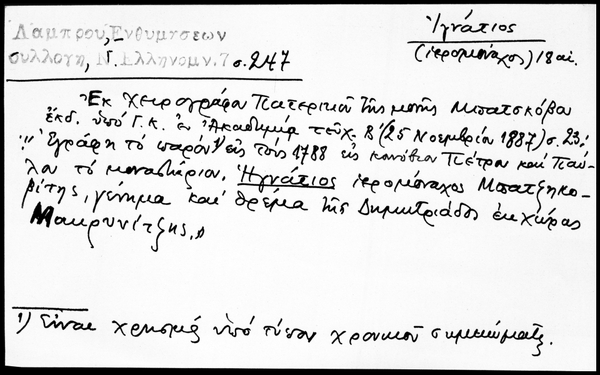 Λάμπρου, Ενθυμήσεων
συλλογή, Ν. Ἑλληνομν. 7 σ. 247
Ἰγνάτιος
(ἱερομόναχος) 18 αἰ.
Ἐκ χειρογράφου Πατερικοῦ τῆς μονῆς Μπατσκόβου
ἐκδ. ὑπό Γ.κ. ἐν Ἀκαδημίᾳ τεῦχ. Β' (25 Νοεμβρίου 1887) σ. 23:
"Ἐγράφη τό παρόν¹⁾ εἰς τούς 1788 εἰς κοινόβιον Πέτρου καί Παύ-
λου τό μοναστήριον. Ἠγνάτιος ἱερομόναχος Μπατζηκο-
βίτης, γέννημα καί θρέμα τῆς Δημητριάδος ἐκ χώρας
Μακρυνίτζης."
1) Εἶναι χρησμός ὑπό τύπον χρονικοῦ σημειώματος.